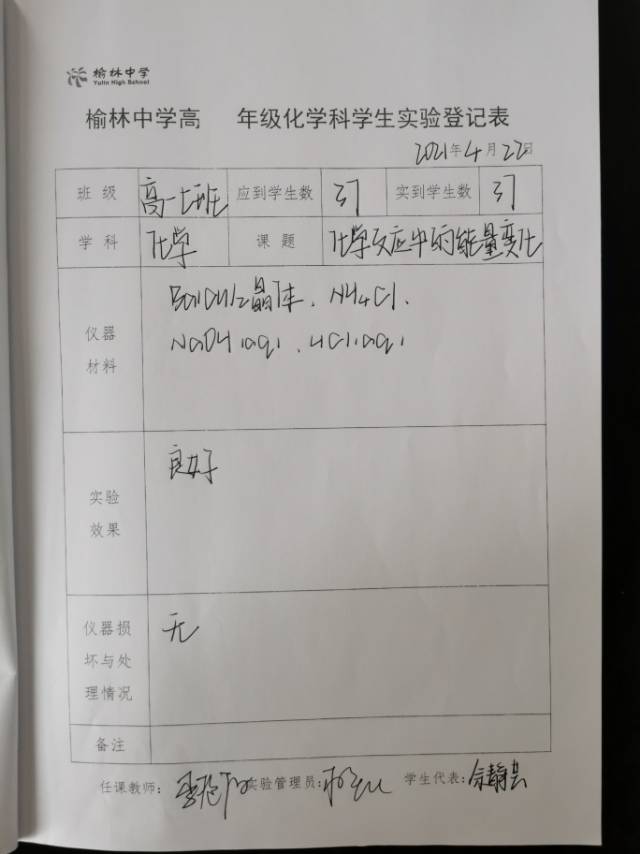 榆林中学
Yulin High School
榆林中学高 年级化学科学生实验登记表
2021年4月22日
班级 高一七班 应到学生数 37 实到学生数 37
学科 化学 课题 化学反应中的能量变化
仪器材料 Ba(OH)2晶体、NH4Cl、
NaOH(aq)、HCl(aq)
实验效果 良好
仪器损坏与处理情况 无
备注
任课教师: 实验管理员: 学生代表: